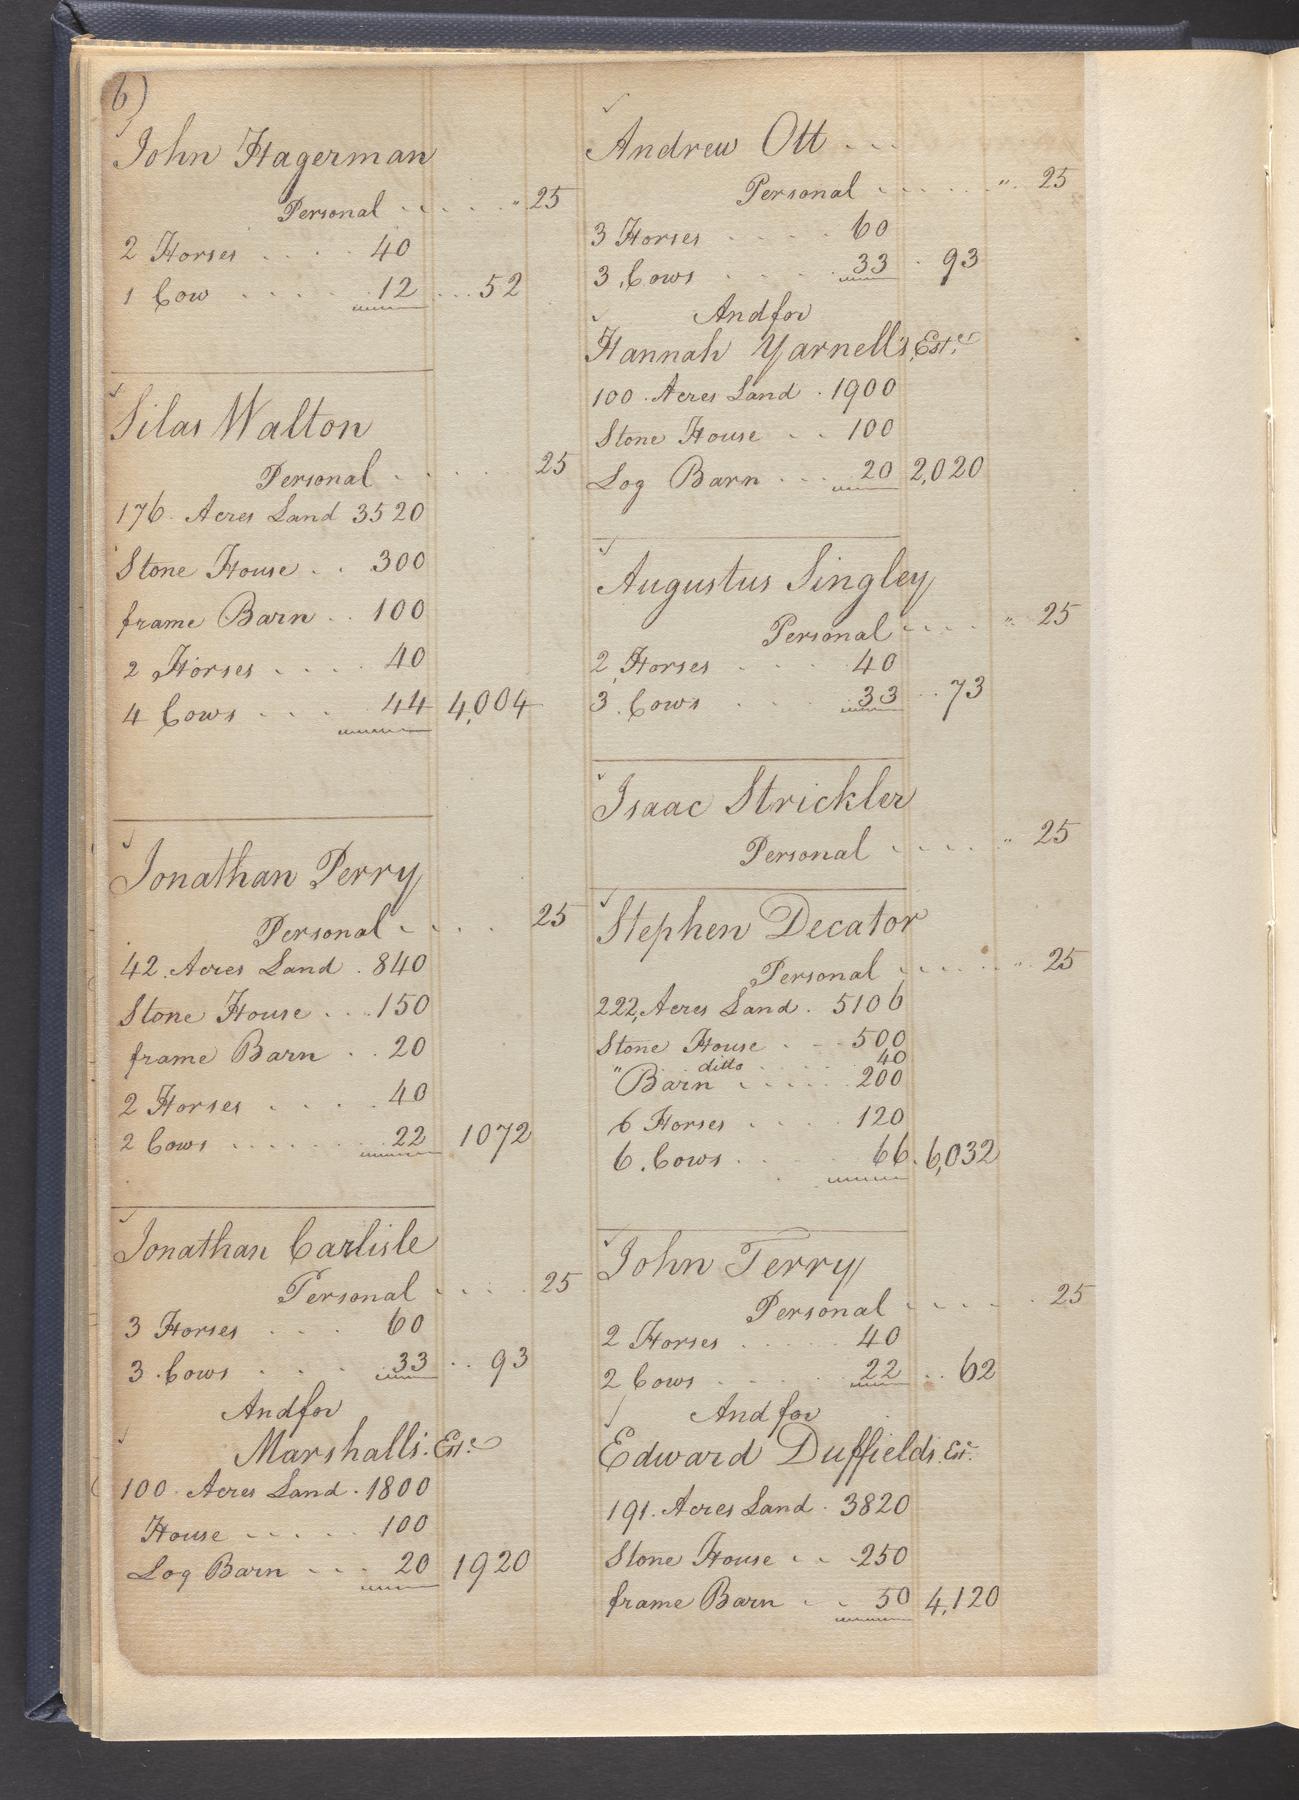 6)
John Hagerman
Personal . . . . . " 25
2 Horses . . . . 40
1 Cow . . . . . 12 . . . 52
Silas Walton
Personal . . . . . 25
176 . Acres Land 3520
Stone House . . 300
frame Barn . . 100
2 Horses . . . . 40
4 Cows . . . . 44 4,004
Jonathan Perry
Personal . . . . 25
42 . Acres Land . 840
Stone House . . . 150
frame Barn . . 20
2 Horses . . . . 40
2 Cows . . . . . . 22 1072
Jonathan Carlisle
Personal . . . . 25
3 Horses . . . 60
3 . Cows . . . . 33 . . 93
And for
Marshall's . Est.e
100 . Acres Land . 1800
House . . . . . 100
Log Barn . . . 20 1920
Andrew Ott . . .
Personal . . . . . " . 25
3 Horses . . . . 60
3 . Cows . . . . 33 . 93
And for
Hannah Yarnell's Est.e
100 . Acres Land . 1900
Stone House . . 100
Log Barn . . . 20 2,020
Augustus Singley
Personal . . . . " . 25
2 Horses . . . . 40
3 . Cows . . . . 33 . . 73
Isaac Strickler
Personal . . . . . " 25
Stephen Decator
Personal . . . . . " . 25
222, Acres Land . 5106
Stone House . . . 500
ditto . . . . . 40
" Barn . . . . . 200
6 Horses . . . . . 120
6 . Cows . . . . 66 . 6,032
John Terry
Personal . . . . . 25
2 Horses . . . . . 40
2 Cows . . . . . 22 . . 62
And for
Edward Duffields Est.
191 . Acres Land . 3820
Stone House . . . 250
frame Barn . . 50 4,120